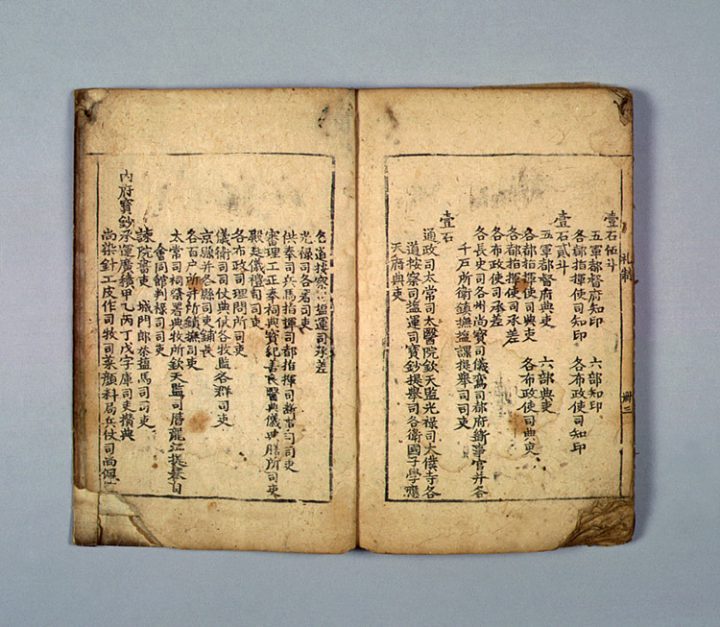 壹石伍斗
五軍都督府知印 六部知印
各都指揮使司知印 各布政使司知印
壹石貳斗
五軍都督府典吏 六部典吏
各都指揮使司典吏 各布政使司典吏
各都指揮使司承差
各布政使司承差
各長史司各州尚寶司儀鸞司都府斷事官并各
千戶所衛鎮撫鹽課提舉司司吏
壹石
通政司太常司太醫院欽天監光祿司太僕寺各
道按察司鹽運司寶鈔提舉司各衛國子學應
天府典吏
各道按察司鹽運司承差
光祿司各署司吏
供奉司兵馬指揮司都指揮司斷事司司吏
審理工正奉祠典寶紀善良醫典儀典膳所司吏
殿廷儀禮司司吏
各布政司理問所司吏
儀衛司司仗典仗各牧監各群司吏
京縣并各縣司吏鋪長
各百戶所并所鎮撫司吏
太常司祠祭署典牧所欽天監司曆龍江提舉司
會同館判祿司司吏
諫院書吏 城門郎 鹽馬司司吏
內府寶鈔承運廣積甲乙丙丁戊字庫司吏攢典
尚染針工皮作司牧司菜顏料局兵仗司尚佩
禮制